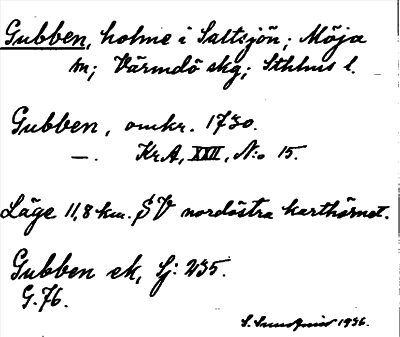 Gubben, holme i Saltsjön; Möja
sn; Värmdö skg; Sthlms l.
Gubben, omkr. 1730.
—. KrA, XXII, N:o 15.
Läge 11,8 km. SV nordöstra karthörnet.
Gubben ek, Sj: 235.
G. 76.
S. 1936.